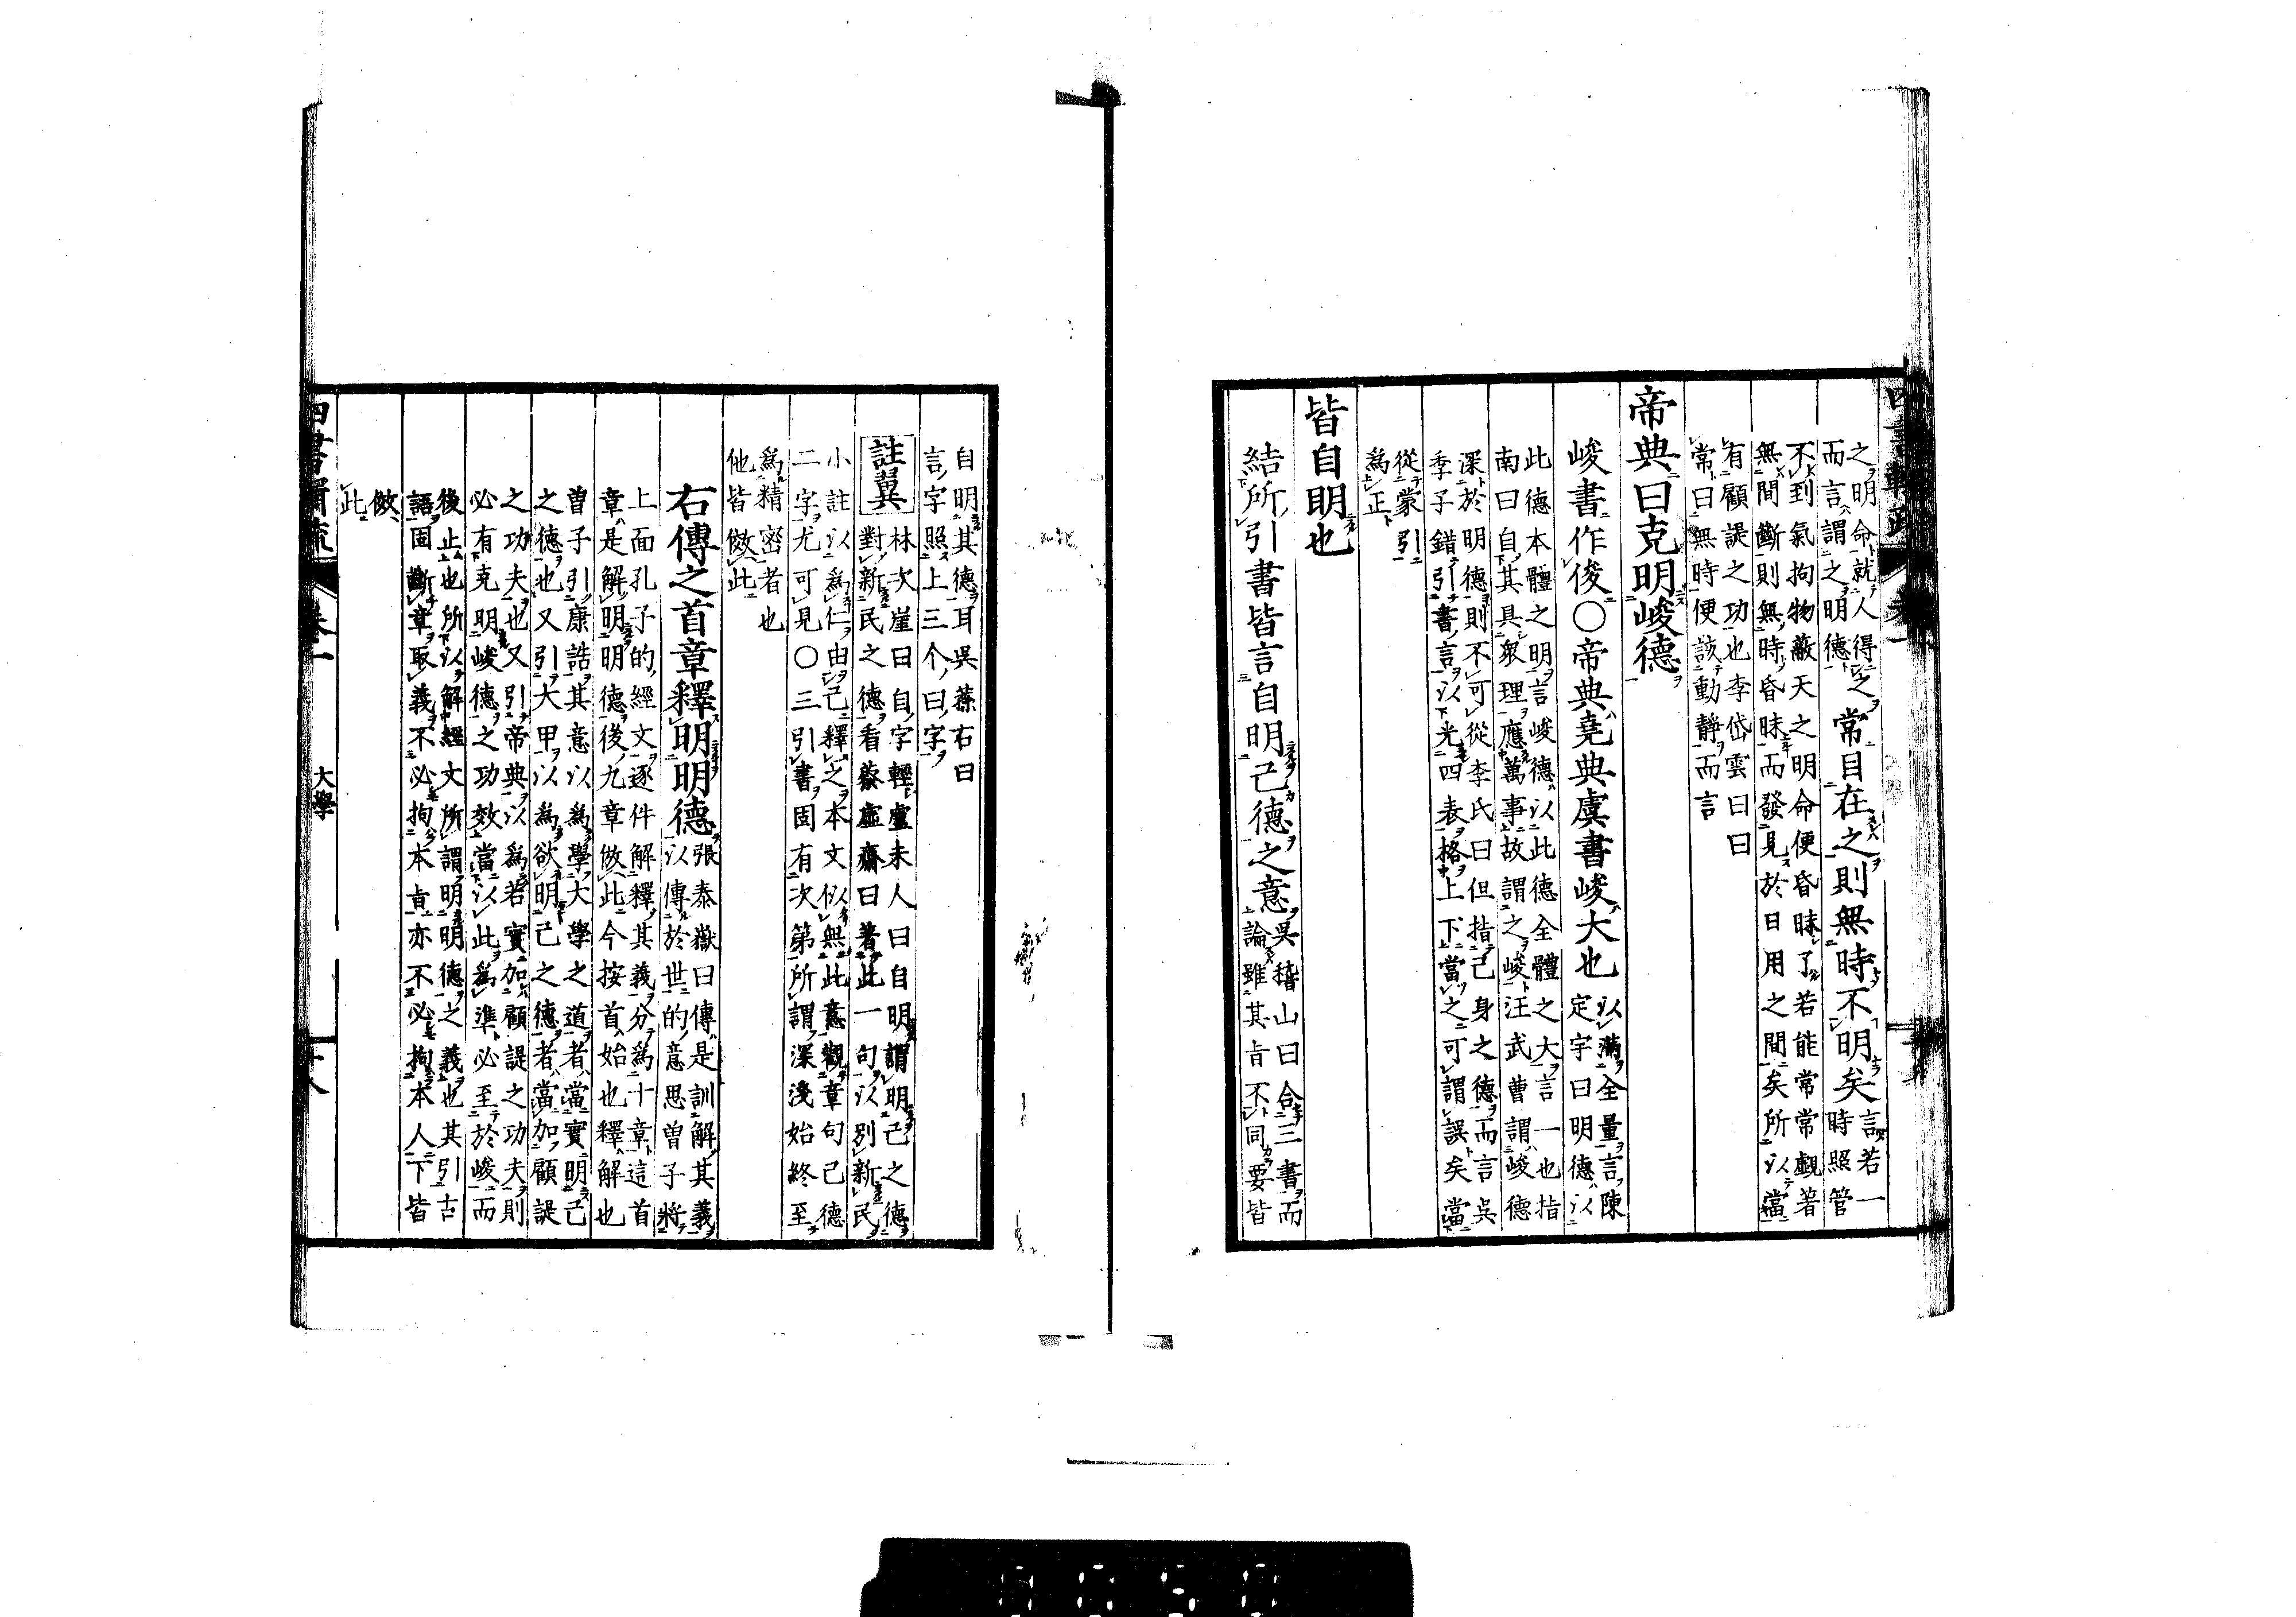 之明命就人得之
而言謂之明德
常目在之則無時不明矣
言若一
時照管
不到氣拘物蔽天之明命便昏昧了若能常常覷著
無間斷則無時昏昧而發見於日用之間矣所以當
有顧諟之功也李岱雲曰曰
常曰無時便該動靜而言
帝典曰克明峻德
峻書作俊○帝典堯典虞書峻大也
以滿全量言陳
定宇曰明德以
此德本體之明言峻德以此德全體之大言一也指
南曰自其具衆理應萬事故謂之峻汪武曹謂峻德
深於明德則不可從李氏曰但指己身之德而言吳
季子錯引書言以光四表格上下當之可謂誤矣當
從蒙引
爲正
皆自明也
結所引書皆言自明己德之意
吳稽山曰合三書而
論雖其旨不同要皆
自明其德耳吳蓀右曰
言字照上三个曰字
註翼
林次崖曰自字輕盧未人曰自明謂明己之德
對新民之德看蔡虛齋曰著此一句以別新民
小註以爲仁由己釋之本文似無此意觀章句己德
二字尤可見○三引書固有次第所謂深淺始終至
爲精密者也
他皆倣此
右傳之首章釋明明德
張泰嶽曰傳是訓解其義
以傳於世的意思曽子將
上面孔子的經文逐件解釋其義分爲十章這首
章是解明明德後九章倣此今按首始也釋解也
曽子引康誥其意以為學大學之道者當實明己
之德也又引大甲以為欲明己之德者當加顧諟
之功夫也又引帝典以為若實加顧諟之功夫則
必有克明峻德之功效當以此為準必至於峻而
後止也所以解經文所謂明明德之義也其引古
語固斷章取義不必拘本旨亦不必拘本人下皆
倣
此
大學